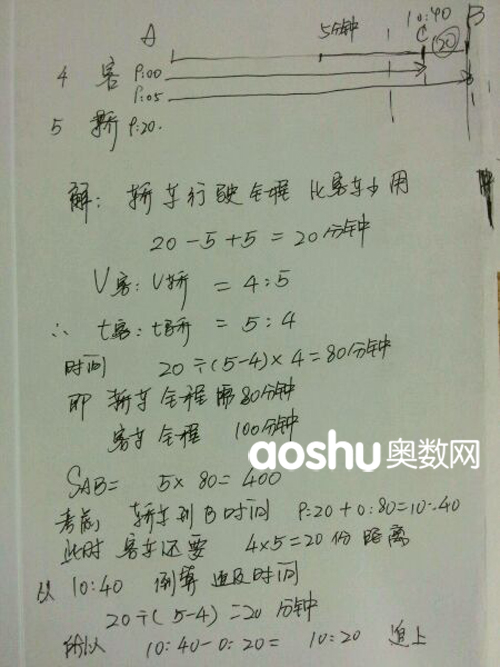 A 5分钟 10:40 B
20
4 客 9:00
9:05
5 轿 9:20.
解: 轿车行驶全程比客车少用
20-5+5=20分钟
V客:V轿 = 4:5
∴ t客:t轿 = 5:4
时间 20÷(5-4)×4=80分钟
即 轿车全程需80分钟
客车全程 100分钟
aoshu奥数网
SAB= 5×80=400
考虑 轿车到B时间 9:20+0:80=10:40
此时 客车还要 4×5=20份距离
从 10:40 倒算追及时间
20÷(5-4)=20分钟
所以 10:40-0:20= 10:20 追上